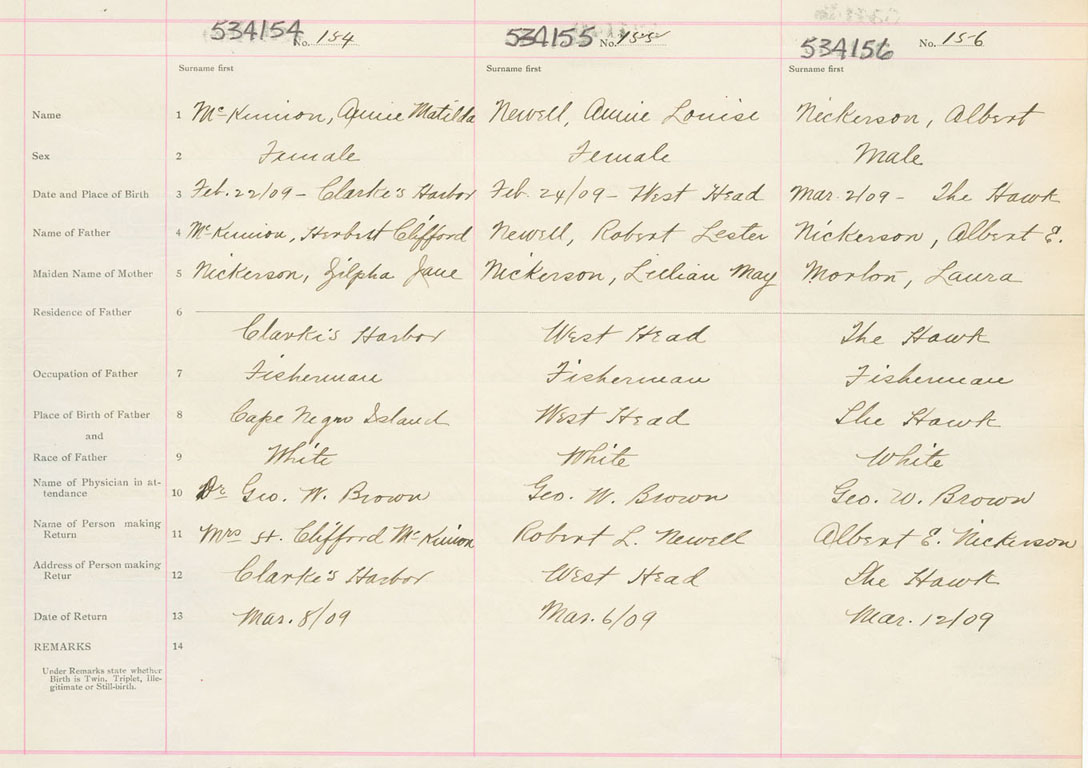 534154 No. 154 534155 No. 155 534156 No. 156
Surname first Surname first Surname first
Name 1 McKinnon, Annie Matilda Newell, Annie Louise Nickerson, Albert
Sex 2 Female Female Male
Date and Place of Birth 3 Feb. 22/09 - Clarke's Harbor Feb. 24/09 - West Head Mar. 2/09 - The Hawk
Name of Father 4 McKinnon, Herbert Clifford Newell, Robert Lester Nickerson, Albert E.
Maiden Name of Mother 5 Nickerson, Zilpha Jane Nickerson, Lillian May Morton, Laura
Residence of Father 6
Clarke's Harbor West Head The Hawk
Occupation of Father 7 Fisherman Fisherman Fisherman
Place of Birth of Father 8 Cape Negro Island West Head The Hawk
and
Race of Father 9 White White White
Name of Physician in at-
tendance 10 Dr Geo. W. Brown Geo. W. Brown Geo. W. Brown
Name of Person making
Return 11 Mrs H. Clifford McKinnon Robert L. Newell Albert E. Nickerson
Address of Person making
Retur 12 Clarke's Harbor West Head The Hawk
Date of Return 13 Mar. 8/09 Mar. 6/09 Mar. 12/09
REMARKS 14
Under Remarks state whether
Birth is Twin, Triplet, Ille-
gitimate or Still-birth.